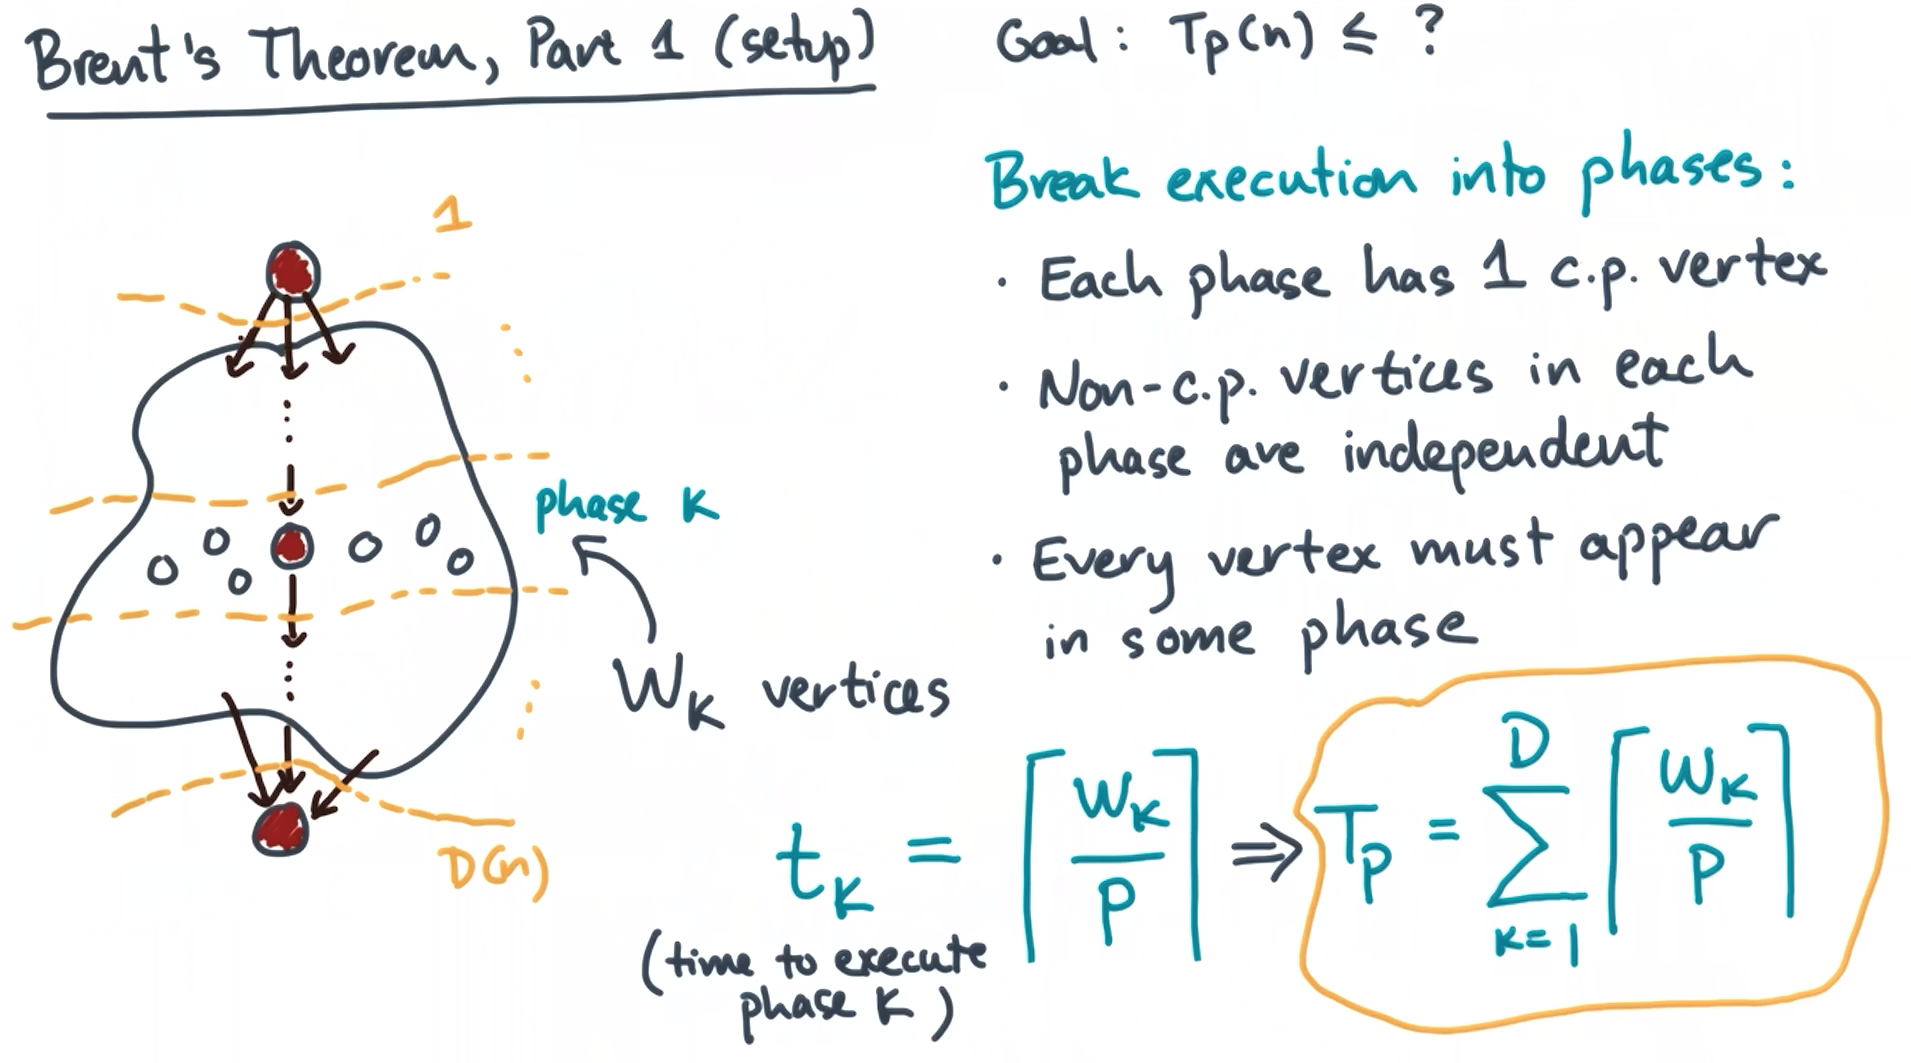 Brent's Theorem, Part 1 (setup)
Goal: Tp(n) ≤ ?
Break execution into phases:
· Each phase has 1 c.p. vertex
· Non-c.p. vertices in each
phase are independent
· Every vertex must appear
in some phase
1
phase k
Wk vertices
D(n)
tk = ⌈Wk/P⌉ ⇒ Tp = ∑_{k=1}^{D} ⌈Wk/P⌉
(time to execute
phase k)